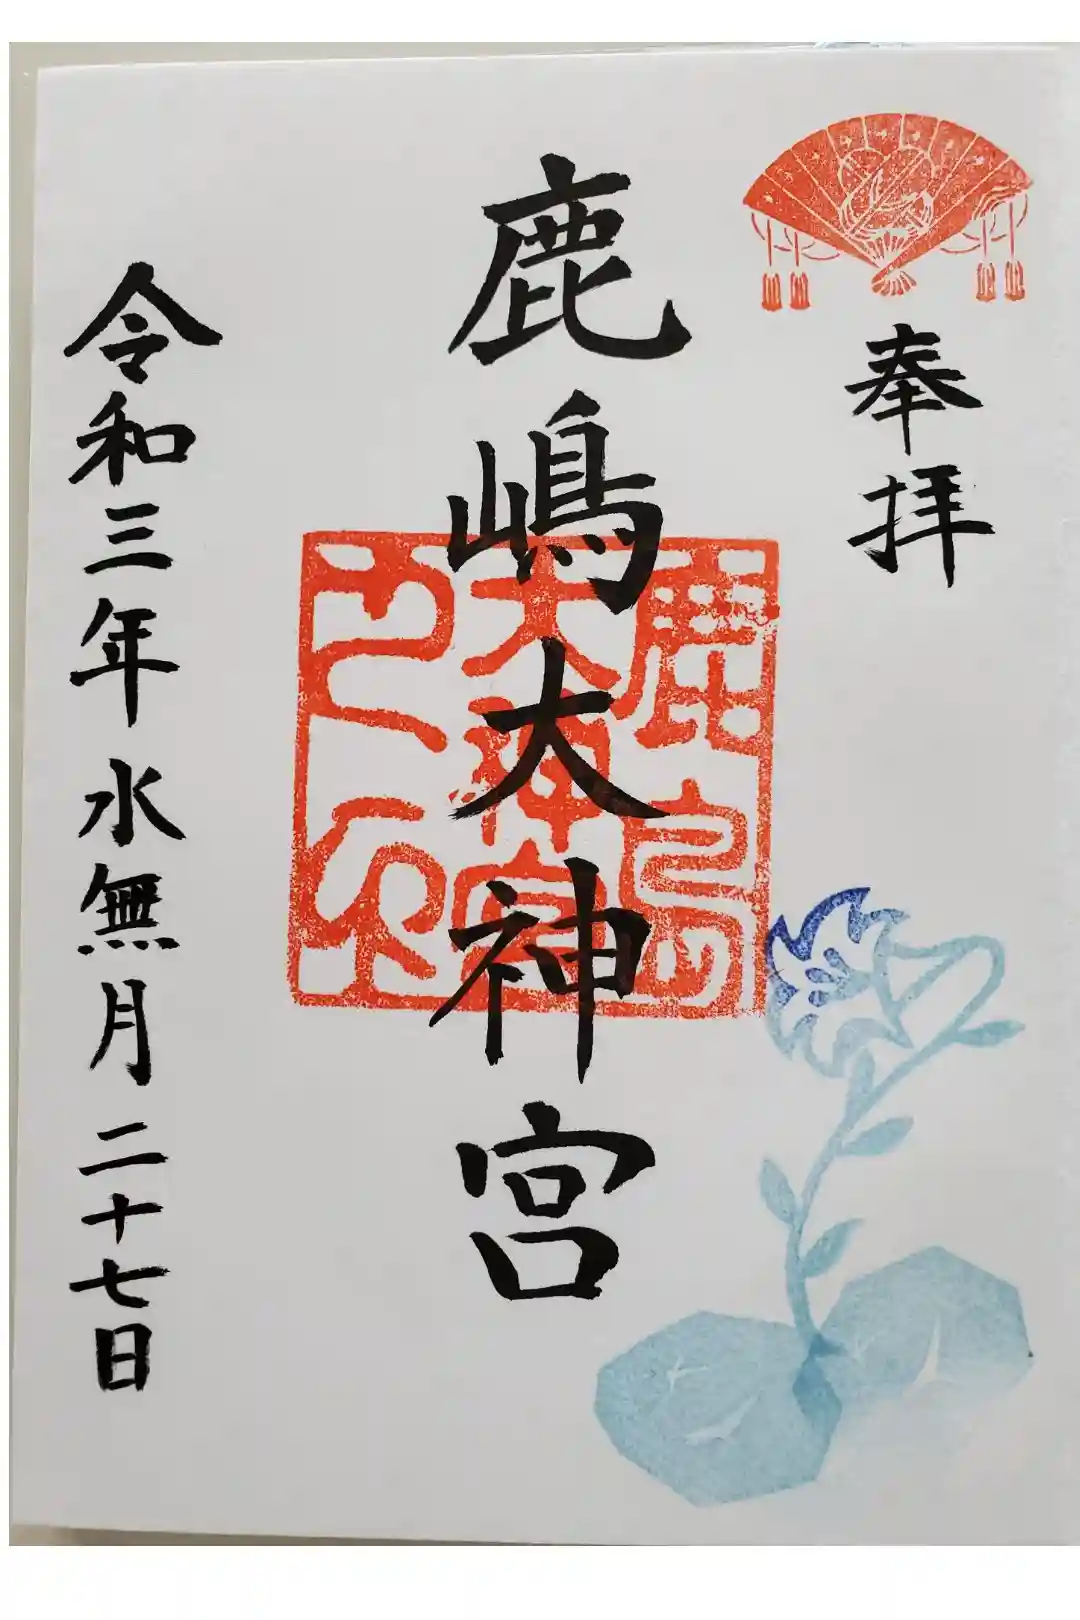 奉拝
鹿嶋大神宮
鹿島
大神宮
令和三年水無月二十七日